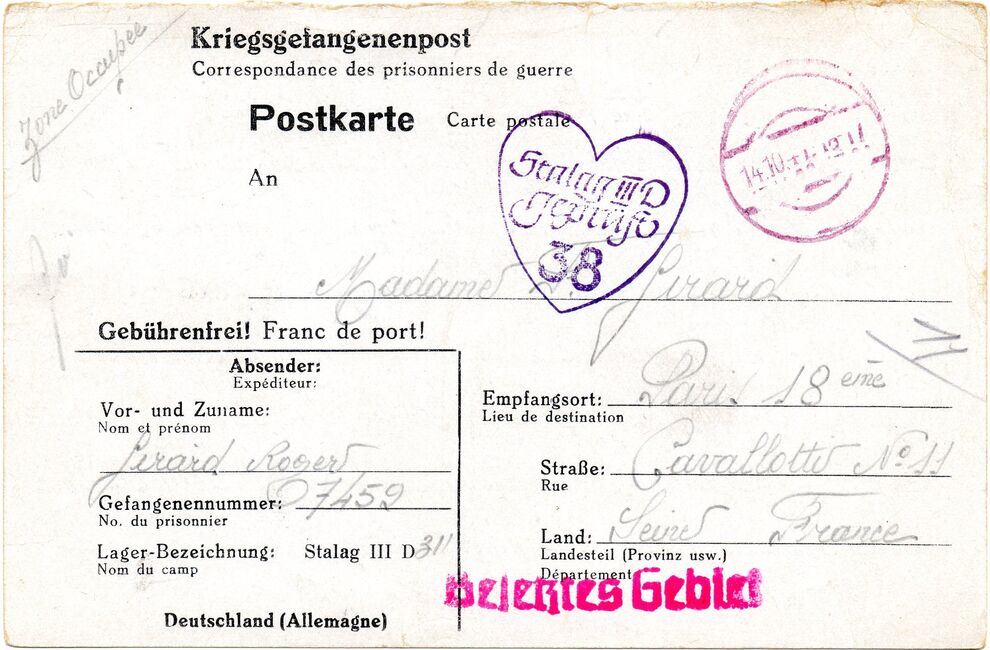 Zone Occupée
Kriegsgefangenenpost
Correspondance des prisonniers de guerre
Postkarte Carte postale
An
Stalag III D
Geprüft
38
14.10.
Madame Girard
Gebührenfrei! Franc de port!
Absender:
Expéditeur:
Vor- und Zuname:
Nom et prénom
Girard Roger
Gefangenennummer: 07459
No. du prisonnier
Lager-Bezeichnung: Stalag III D
Nom du camp
Deutschland (Allemagne)
11
Empfangsort: Paris 18 eme
Lieu de destination
Straße: Cavallotti No 11
Rue
Land: Seine France
Landesteil (Provinz usw.)
Département
Besetztes Gebiet